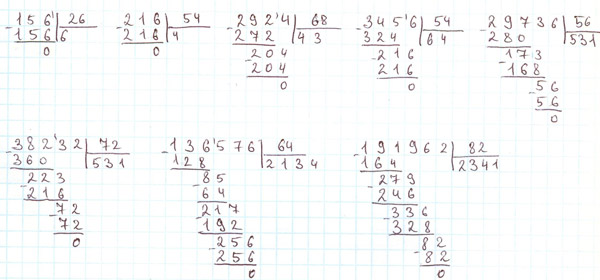 -156' 26
156 6
0
-216 54
216 4
0
-292'4 68
272 43
-204
204
0
-345'6 54
324 64
-216
216
0
-29736 56
280 531
173
-168
-56
56
0
-382'32 72
360 531
-223
216
-72
72
0
-136'576 64
128 2134
-85
64
-217
192
-256
256
0
-191962 82
164 2341
-279
246
-336
328
-82
82
0